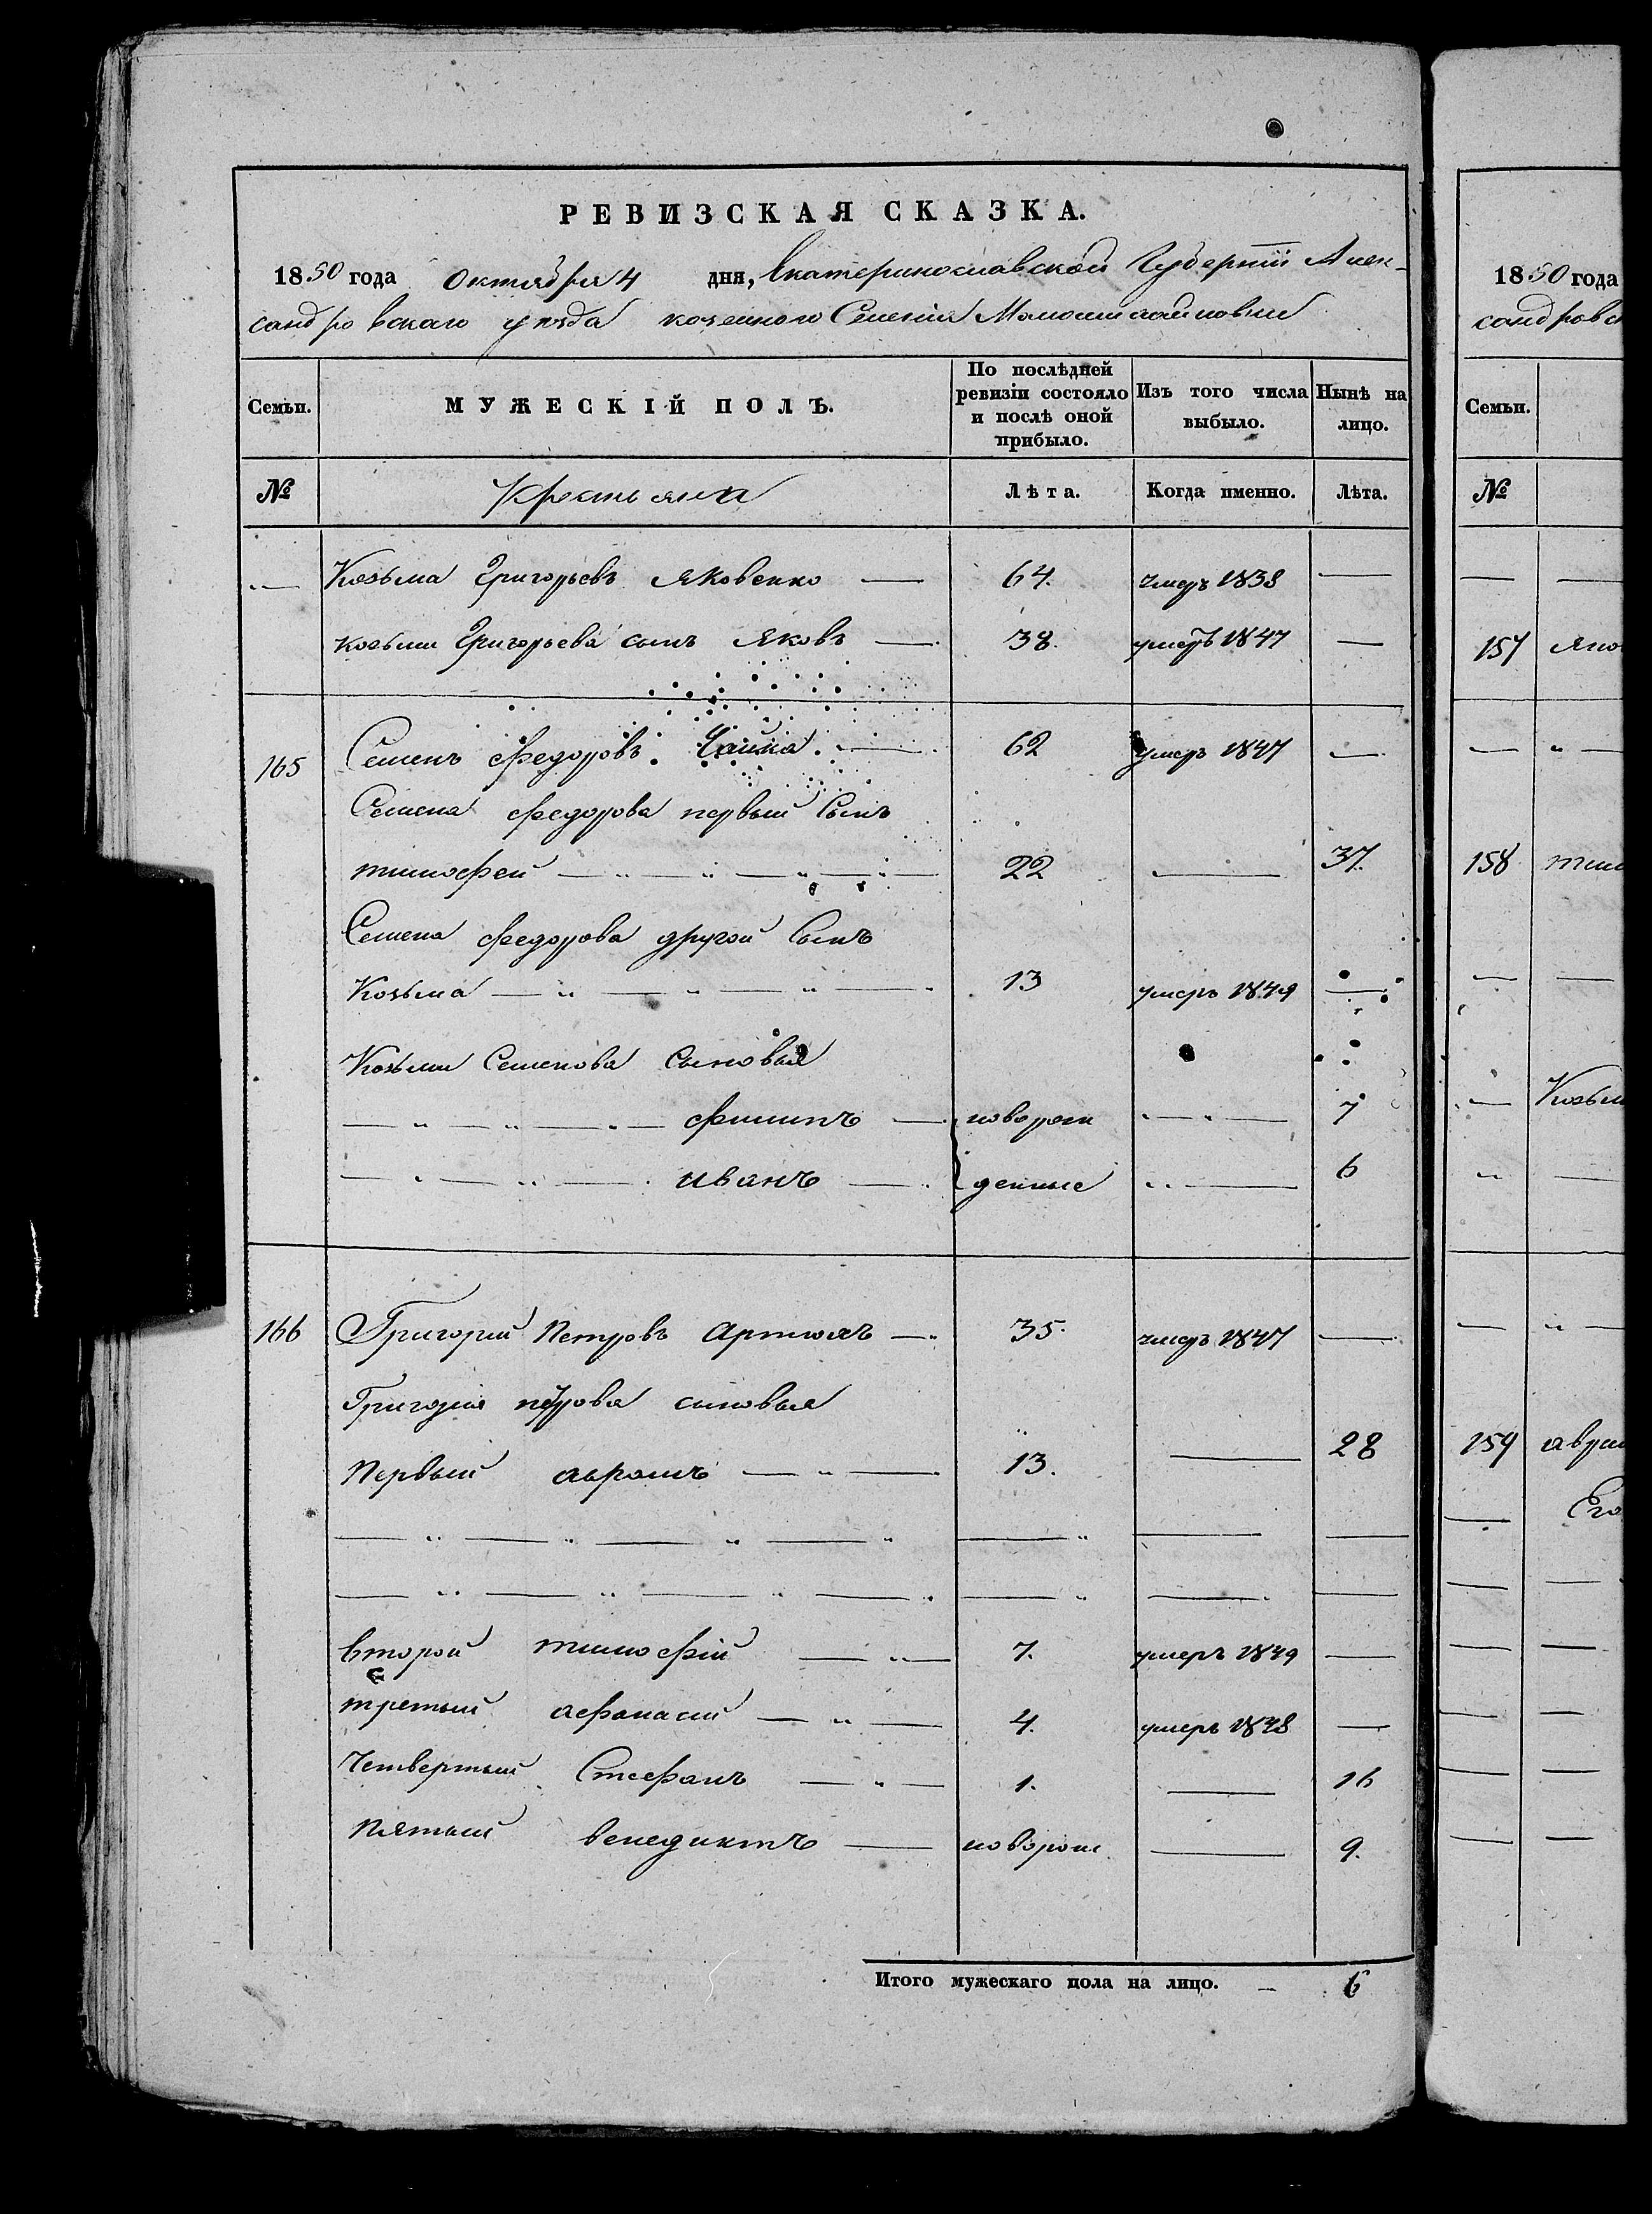 РЕВИЗСКАЯ СКАЗКА.
1850 года Октября 4 дня, Екатеринославской Губернии Алек-
сандровскаго уезда казенного Селения
Семьи. МУЖЕСКІЙ ПОЛЪ. По послѣдней ревизіи состояло и послѣ оной прибыло. Изъ того числа выбыло. Нынѣ на лицо.
№ Крестьяна Лѣта. Когда именно. Лѣта.
Козьма Григорьевъ Яковенко 64. умеръ 1838
козьми Григорьева сынъ Яковъ 38. умеръ 1847
165 Семенъ Федоровъ Чайка 62 умеръ 1847
Семена Федорова первый Сынъ
тимофей 22 37.
Семена Федорова другой Сынъ
Козьма 13 умеръ 1849
Козьми Семенова Сыновья
Филипъ новорож 7
иванъ денные 6
166 Григорий Петровъ Артюхъ 35. умеръ 1847
Григория петрова сыновья
Первый авромъ 13. 28
второй тимофій 7. умеръ 1849
третьий афанасий 4. умеръ 1848
Четвертый Стефанъ 1. 16
Пятый венедиктъ новорож. 9.
Итого мужескаго пола на лицо. 6
1850 года
сандровск
Семьи.
№
157 Яко
158 тим
Козьм
159 аврам
Его